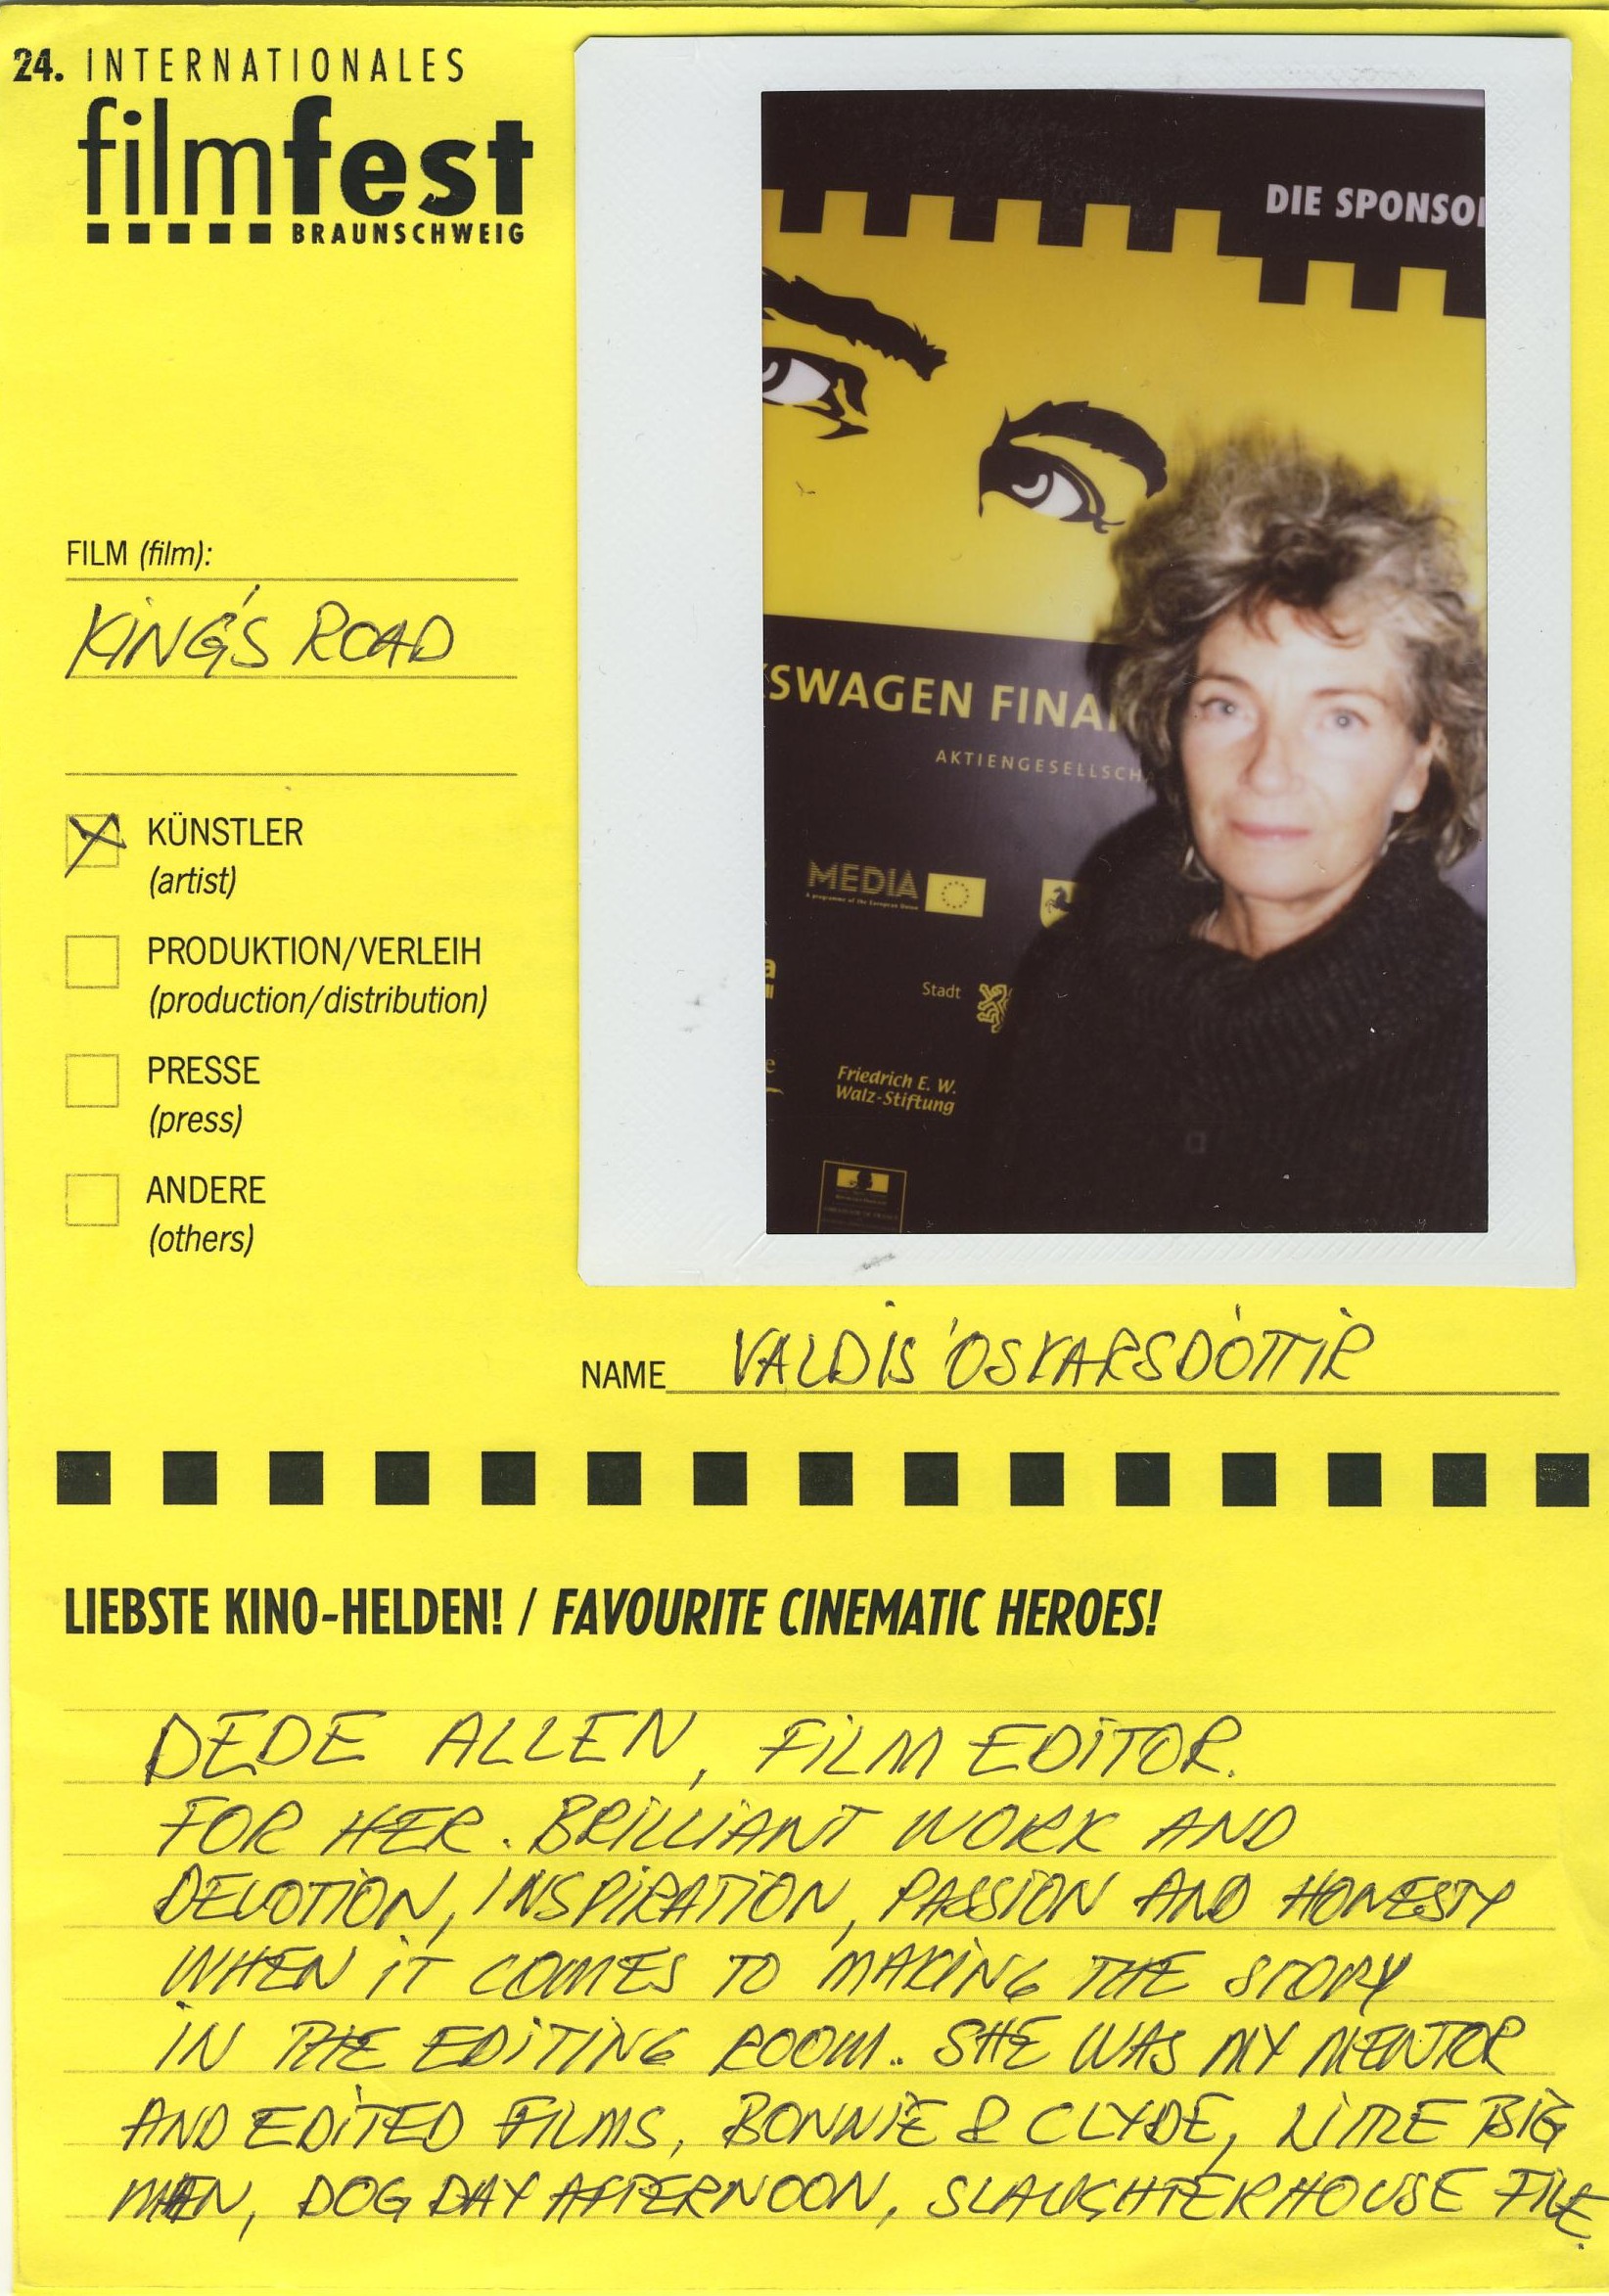 24. INTERNATIONALES
filmfest
BRAUNSCHWEIG
DIE SPONSO
SWAGEN FINA
AKTIENGESELLSCHA
MEDIA
A programme of the European Union
Stadt
Friedrich E. W.
Walz-Stiftung
FILM (film):
KING'S ROAD
KÜNSTLER
(artist)
PRODUKTION/VERLEIH
(production/distribution)
PRESSE
(press)
ANDERE
(others)
NAME VALDIS ÓSKARSDÓTTIR
LIEBSTE KINO-HELDEN! / FAVOURITE CINEMATIC HEROES!
DEDE ALLEN, FILM EDITOR.
FOR HER. BRILLIANT WORK AND
DEVOTION, INSPIRATION, PASSION AND HONESTY
WHEN IT COMES TO MAKING THE STORY
IN THE EDITING ROOM.. SHE WAS MY MENTOR
AND EDITED FILMS, BONNIE & CLYDE, LITTLE BIG
MAN, DOG DAY AFTERNOON, SLAUGHTERHOUSE FIVE.